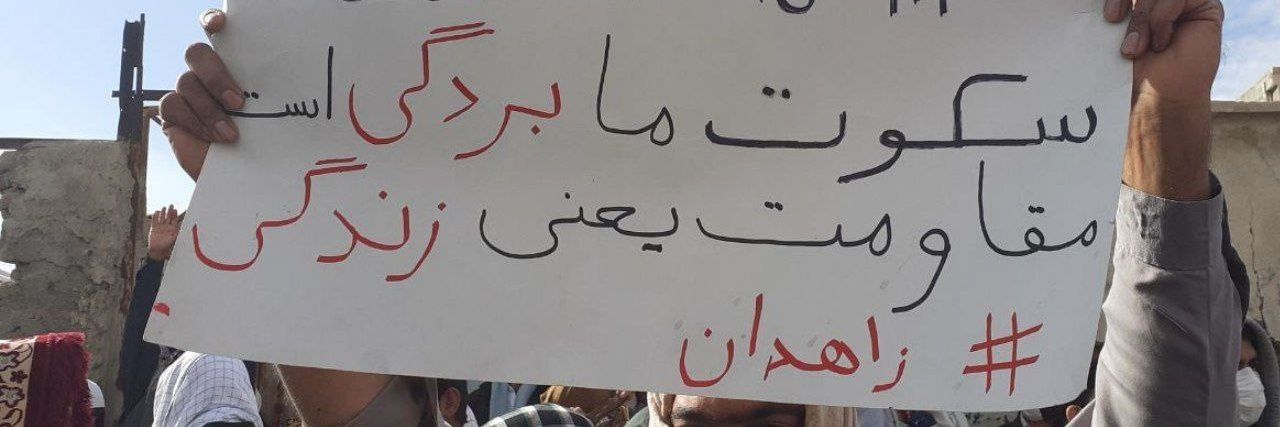 سکوت ما بردگی است
مقاومت یعنی زندگی
# زاهدان